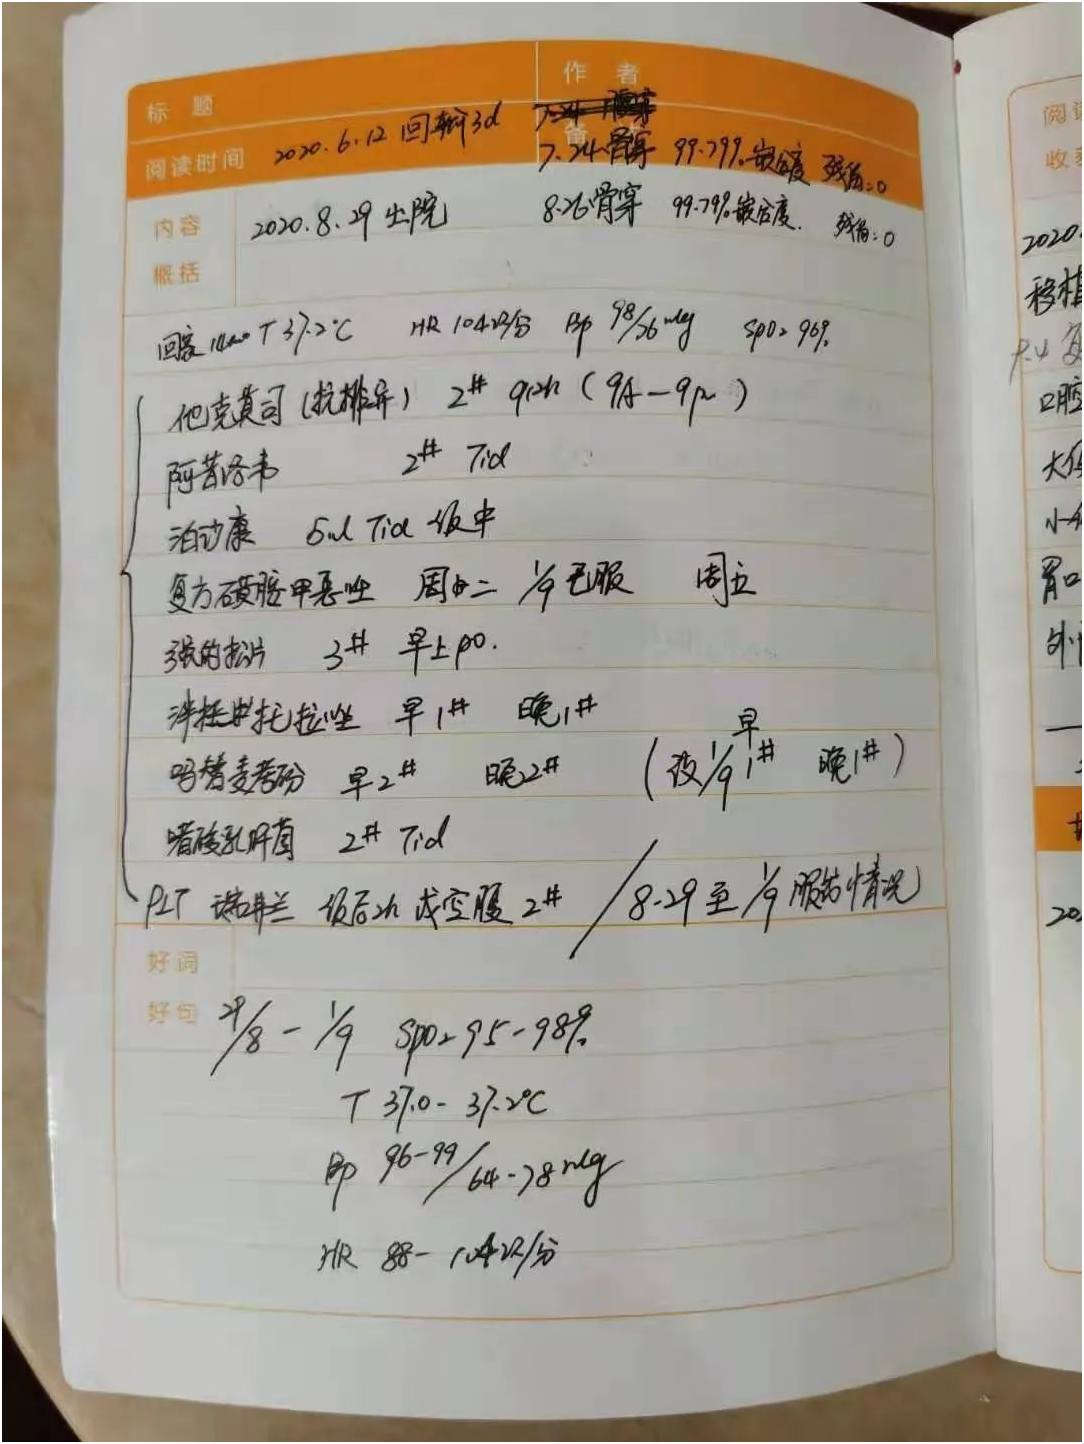 标 题
作 者
7.24 骨穿
阅读时间 2020.6.12 回输3d 备
7.24骨穿 99.79%嵌合度 残留:0
内容 2020.8.29 出院 8.26骨穿 99.79%嵌合度. 残留:0
概括
回家 T 37.2℃ HR 104次/分 Bp 98/76mmHg SpO2 96%
他克莫司(抗排异) 2# q12h (9A-9pm)
阿昔洛韦 2# Tid
泊沙康 5ml Tid 饭中
复方磺胺甲恶唑 周二 1/9已服 周五
强的松片 3# 早上po.
泮托拉唑 早1# 晚1#
吗替麦考酚 早2# 晚2# (改1/9 早1# 晚1#)
嗜酸乳杆菌 2# Tid
PLT 瑞弗兰 饭后2h或空腹 2# / 8.29至1/9服药情况
好词
好句 29/8-1/9 SpO2 95-98%
T 37.0-37.2℃
Bp 96-99/64-78mmHg
HR 88-104次/分
阅读
收获
2020.
移植
9.4
口腔
大
小
胃口
外
20